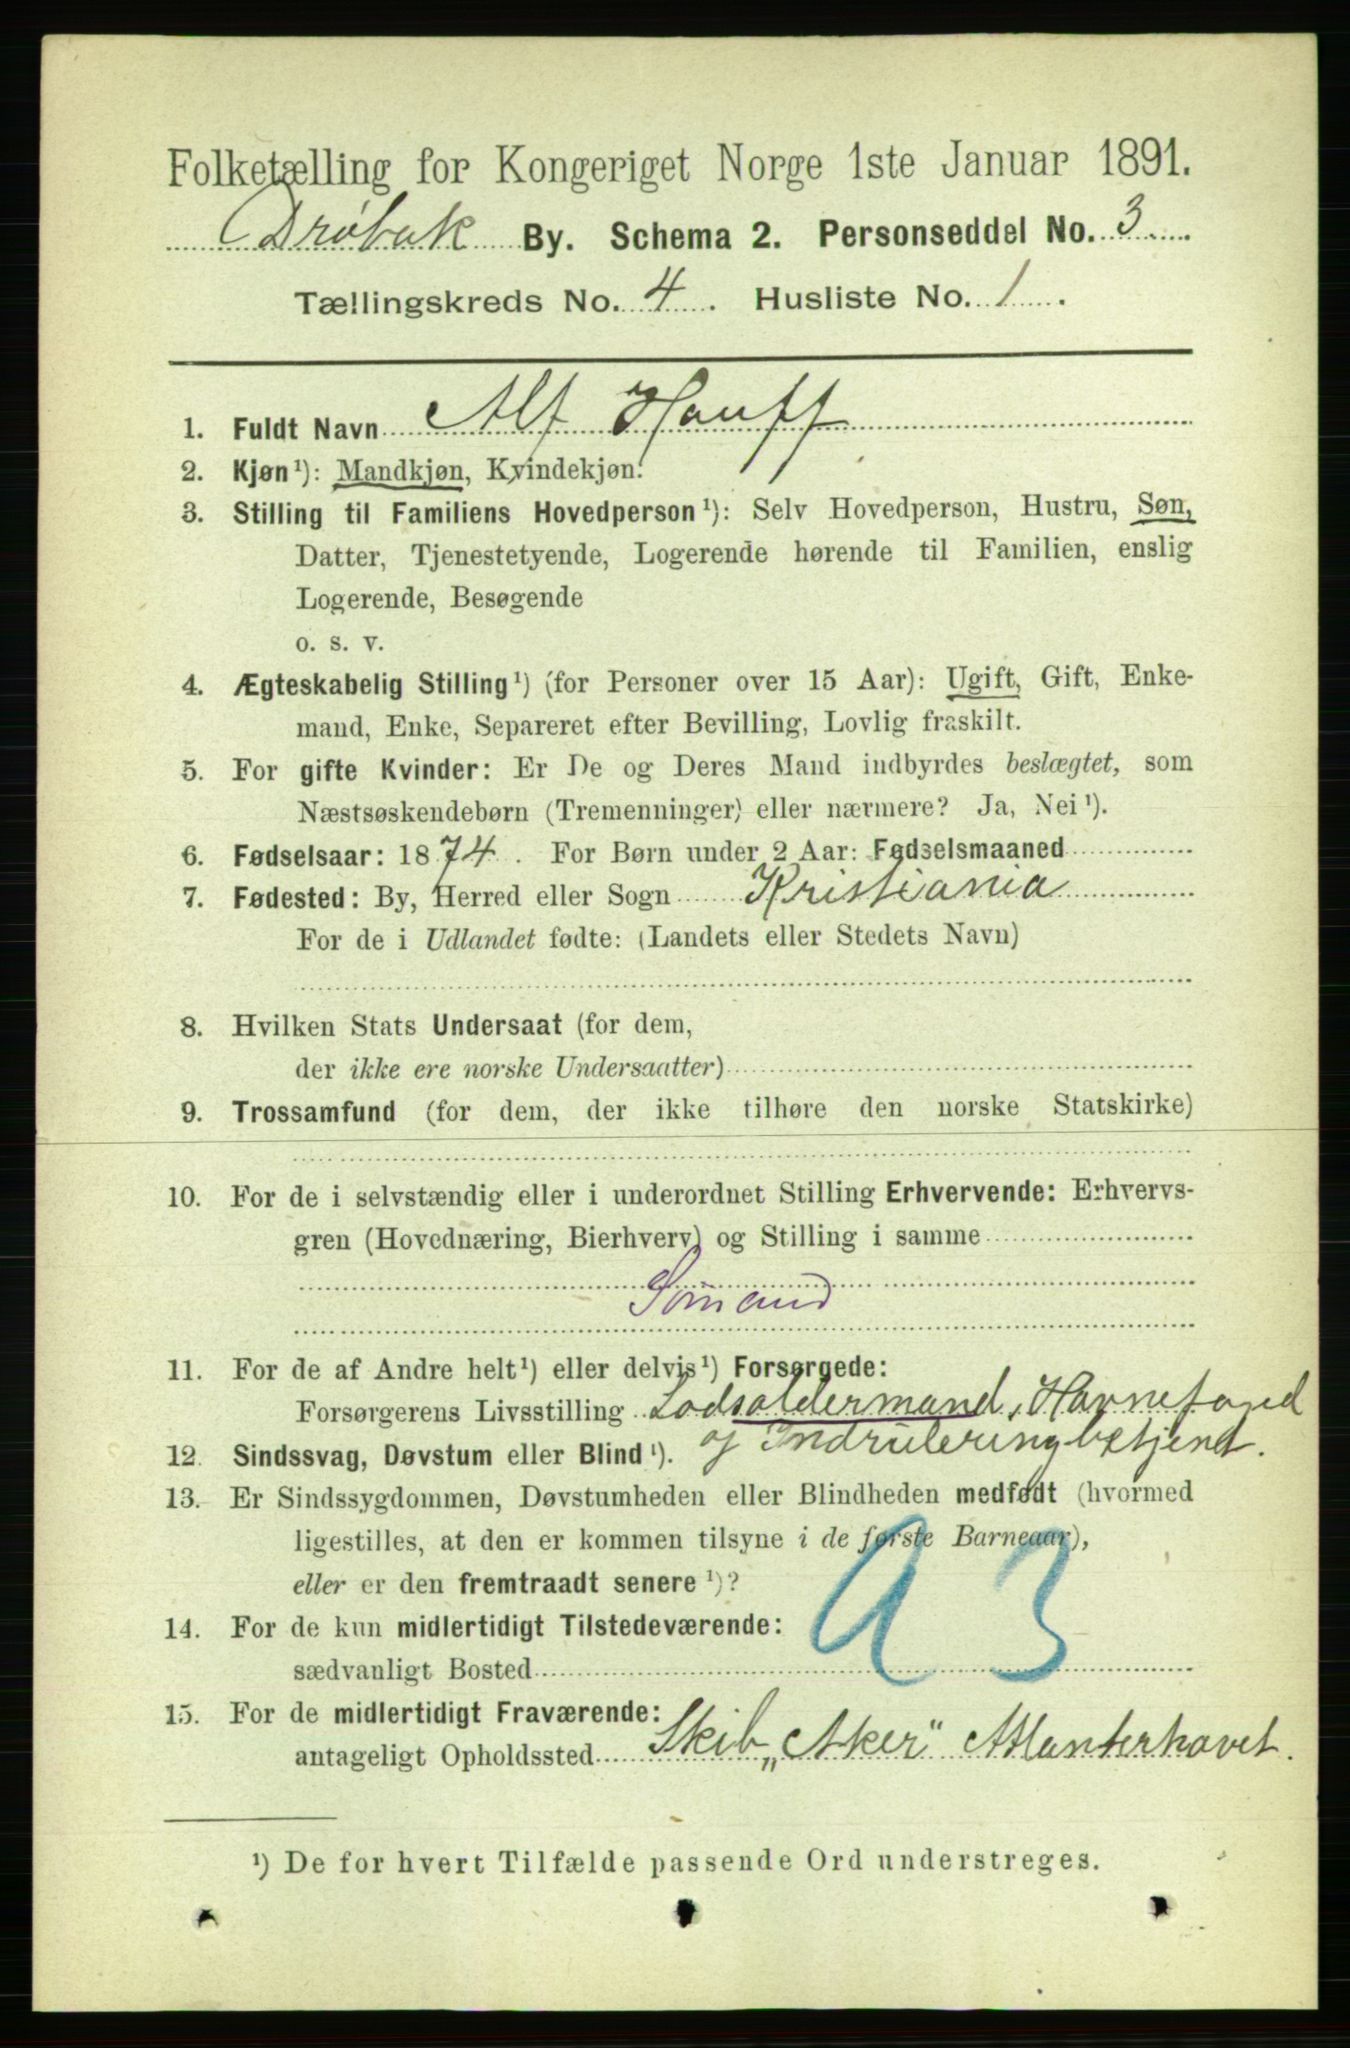 Folketælling for Kongeriget Norge 1ste Januar 1891.
Drøbak By. Schema 2. Personseddel No. 3
Tællingskreds No. 4. Husliste No. 1.
1. Fuldt Navn Alf Hauff
2. Kjøn¹): Mandkjøn, Kvindekjøn.
3. Stilling til Familiens Hovedperson¹): Selv Hovedperson, Hustru, Søn,
Datter, Tjenestetyende, Logerende hørende til Familien, enslig
Logerende, Besøgende
o. s. v.
4. Ægteskabelig Stilling¹) (for Personer over 15 Aar): Ugift, Gift, Enke-
mand, Enke, Separeret efter Bevilling, Lovlig fraskilt.
5. For gifte Kvinder: Er De og Deres Mand indbyrdes beslægtet, som
Næstsøskendebørn (Tremenninger) eller nærmere? Ja, Nei¹).
6. Fødselsaar: 1874. For Børn under 2 Aar: Fødselsmaaned
7. Fødested: By, Herred eller Sogn Kristiania
For de i Udlandet fødte: (Landets eller Stedets Navn)
8. Hvilken Stats Undersaat (for dem,
der ikke ere norske Undersaatter)
9. Trossamfund (for dem, der ikke tilhøre den norske Statskirke)
10. For de i selvstændig eller i underordnet Stilling Erhvervende: Erhvervs-
gren (Hovednæring, Bierhverv) og Stilling i samme
Sömand
11. For de af Andre helt¹) eller delvis¹) Forsørgede:
Forsørgerens Livsstilling Lodsoldermand, Havnefoged
og Indruleringbetjent.
12. Sindssvag, Døvstum eller Blind¹).
13. Er Sindssygdommen, Døvstumheden eller Blindheden medfødt (hvormed
ligestilles, at den er kommen tilsyne i de første Barneaar),
eller er den fremtraadt senere¹)?
93
14. For de kun midlertidigt Tilstedeværende:
sædvanligt Bosted
15. For de midlertidigt Fraværende:
antageligt Opholdssted Skib „Aker" Atlanterhavet.
¹) De for hvert Tilfælde passende Ord understreges.